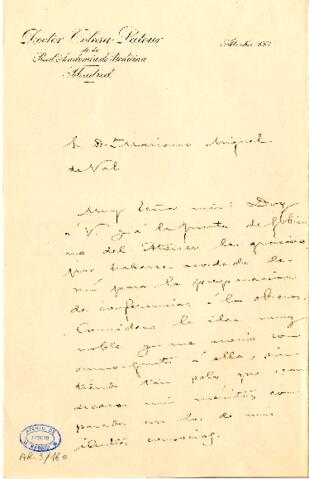 Doctor Tolosa Latour
de la
Real Academia de Medicina
Madrid
Atocha 133
S. D. Mariano Miguel
de Val
Muy Señor mio: Doy
á V. y á la Junta de Gobier
no del Ateneo las gracias
por haberse acordado de
mi para la preparacion
de conferencias á los obreros.
Considero la idea muy
noble y me asocio con
á ella, sin
tiendo tan solo que sean
escasos mis méritos com
parados con los de mis
ilustres consocios.
ATENEO DE
MADRID
AR-3/160